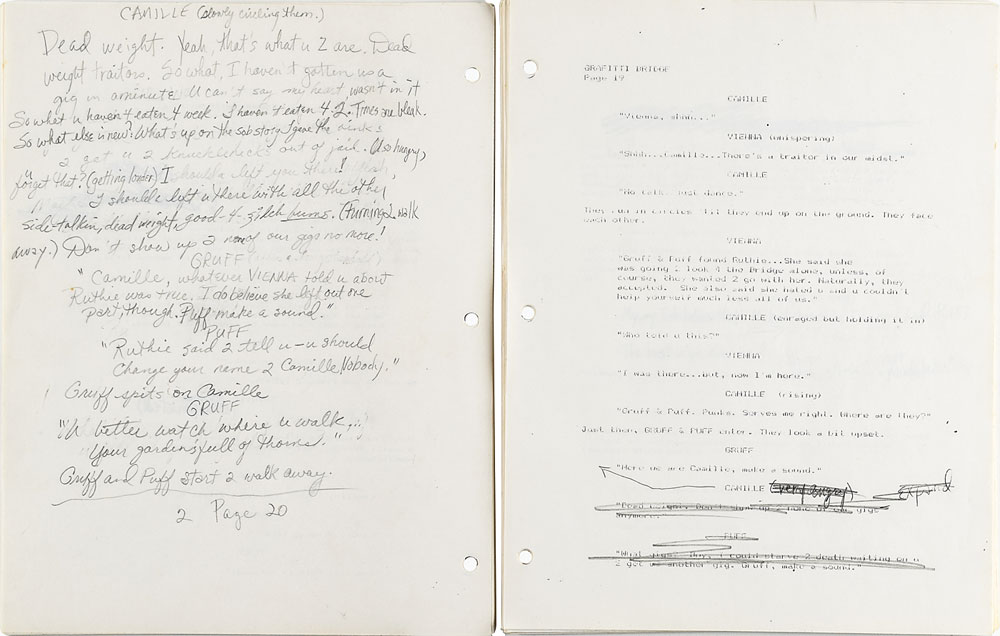 CAMILLE (slowly circling them.)
Dead weight. Yeah, that's what u 2 are. Dead
weight traitors. So what, I haven't gotten us a
gig in a minute. U can't say my heart wasn't in it
So what u haven't eaten 4 week. I haven't eaten 4 2. Times are bleak.
So what else is new? What's up on the sob story I gave the
2 get u 2 knuckleheads out of jail. U so hungry,
u forget that? (getting louder) I shoulda left you there! Yeah
I shoulda left u there with all the other
side-talkin, dead weight, good-4-zilch bums. (Turning 2 walk
away.) Don't show up 2 none of our gigs no more!
GRUFF
"Camille, whatever VIENNA told u about
Ruthie was true. I do believe she left out one
part, though. Puff make a sound."
PUFF
"Ruthie said 2 tell u-u should
Change your name 2 Camille Nobody."
Gruff spits on Camille
GRUFF
"U better watch where u walk...
Your garden's full of thorns."
Gruff and Puff start 2 walk away.
2 Page 20
GRAFITTI BRIDGE
Page 19
CAMILLE
"Vienna, shhh..."
VIENNA (whispering)
"Shhh...Camille...There's a traitor in our midst."
CAMILLE
"No talk. Just dance."
They run in circles 'til they end up on the ground. They face
each other.
VIENNA
"Gruff & Puff found Ruthie...She said she
was going 2 look 4 the Bridge alone, unless, of
course, they wanted 2 go with her. Naturally, they
accepted. She also said she hated u and u couldn't
help yourself much less all of us."
CAMILLE (enraged but holding it in)
"Who told u this?"
VIENNA
"I was there...but, now I'm here."
CAMILLE (rising)
"Gruff & Puff. Punks. Serves me right. Where are they?"
Just then, GRUFF & PUFF enter. They look a bit upset.
GRUFF
"Here we are Camille, make a sound."
CAMILLE (very angry) expand
"Dead weight. Don't show up 2 none of our gigs
anymore."
PUFF
"What gigs? Hey, I could starve 2 death waiting on u
2 get us another gig. Gruff, make a sound."